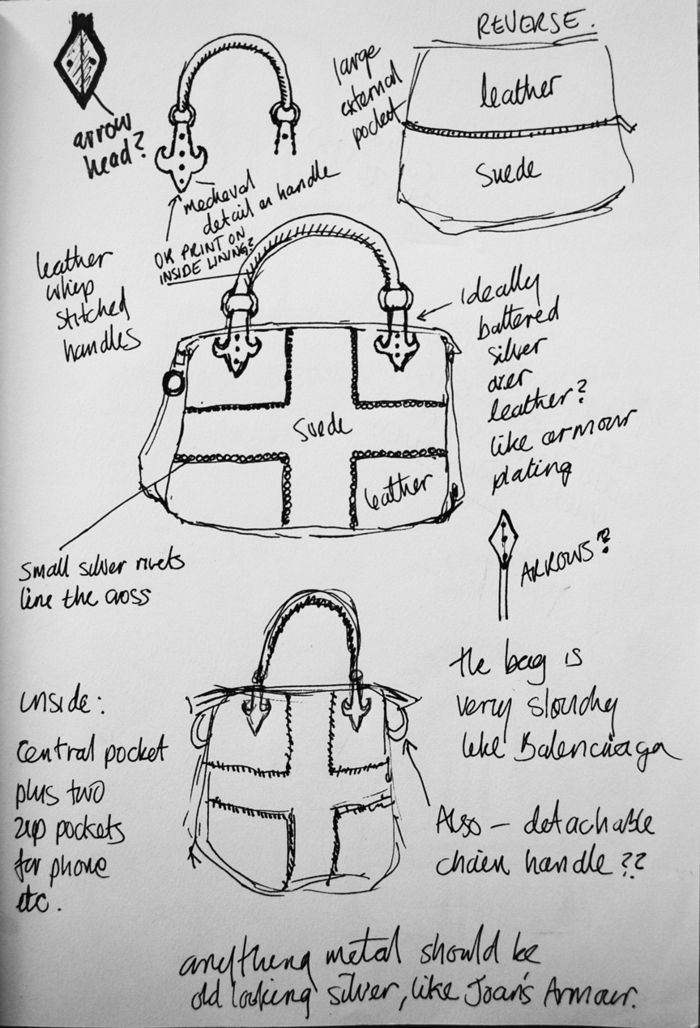 REVERSE.
large
external
pocket
leather
Suede
arrow
head?
medieval
detail on handle
OR PRINT ON
INSIDE LINING?
leather
whip
stitched
handles
Ideally
battered
silver
over
leather?
like armour
plating
Suede
leather
small silver rivets
line the cross
ARROWS?
the bag is
very slouchy
like Balenciaga
inside:
central pocket
plus two
zip pockets
for phone
etc.
Also - detachable
chain handle??
anything metal should be
old looking silver, like Joan's Armour.